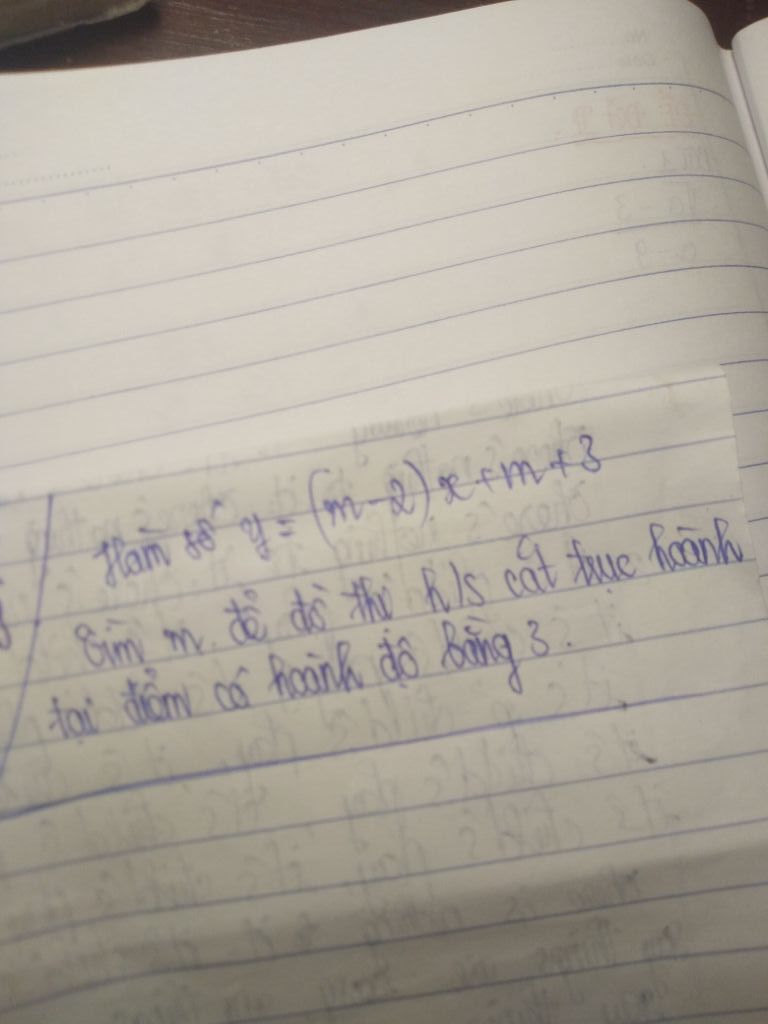 Hàm số y = (m-2)x+m+3
Tìm m để đồ thị h/s cắt trục hoành
tại điểm có hoành độ bằng 3.